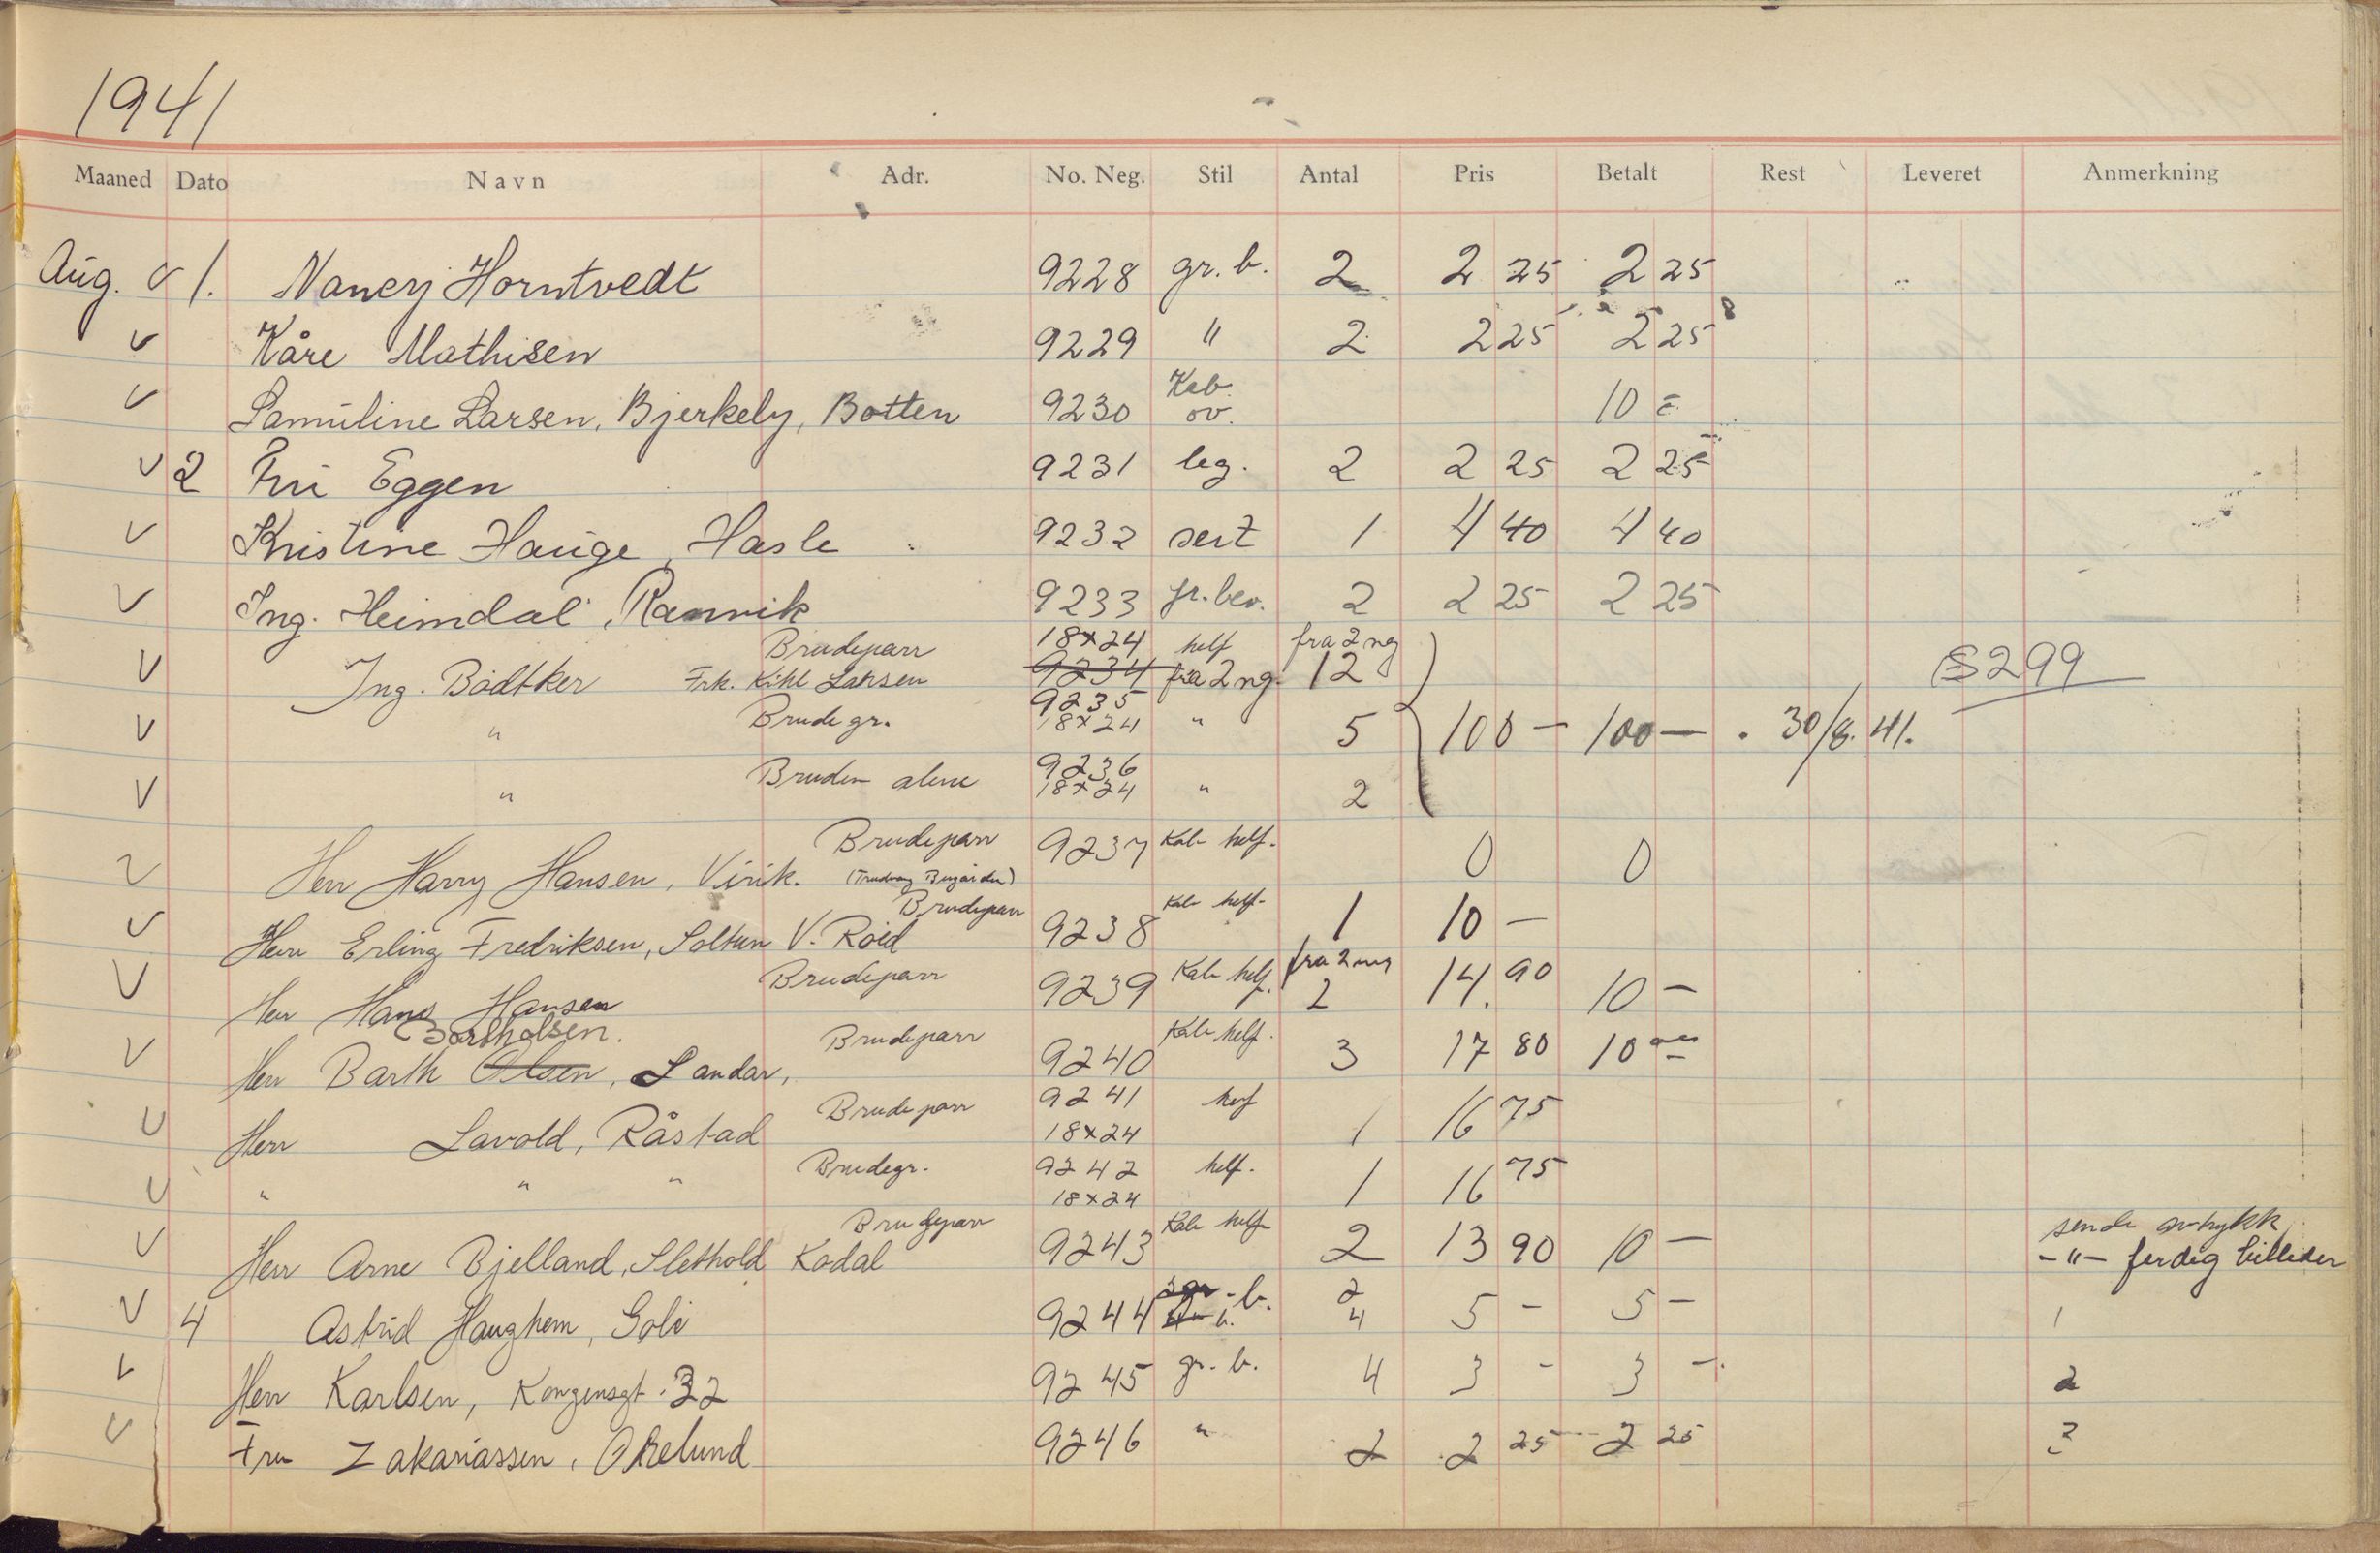 1941
Maaned Dato Navn Adr. No. Neg. Stil Antal Pris Betalt Rest Leveret Anmerkning
Aug. V 1. Nancy Horntvedt 9228 gr. b. 2 2 25 2 25
V Kåre Mathisen 9229 " 2 2 25 2 25
V Samuline Larsen, Bjerkely, Botten 9230 Kab. ov. 10 =
V 2 Fru Eggen 9231 leg. 2 2 25 2 25
V Kristine Hauge, Hasle 9232 sert 1 4 40 4 40
V Ing. Heimdal, Ranvik 9233 gr. bev. 2 2 25 2 25
Brudeparr 18×24 helf fra 2 ng
V Ing. Bödtker Frk. Kihl Larsen 9234 fra 2 ng. 12 299
9235
V " Brudegr. 18×24 " 5 100 — 100 — . 30/8. 41.
9236
V " Bruden alene 18×24 " 2
Brudeparr 9237 Kab helf. 0 0
V Herr Harry Hansen, Virik.
Brudeparr Kab helf.
V Herr Erling Fredriksen, Soltun V. Roed 9238 1 10 —
Brudeparr 9239 Kab helf. fra 2 ng 2 14. 90 10 —
V Herr Hans Hansen
Bartholsen.
Brudeparr Kab helf.
V Herr Barth Olsen, Sandar, 9240 3 17 80 10
Brudeparr 9241 hef
V Herr Lavold, Råstad 18×24 1 16 75
V " " " Brudegr. 9242 helf. 1 16 75
18×24
Brudeparr Kab helf sende avtrykk
V Herr Arne Bjelland, Slethold Kodal 9243 2 13 90 10 — -"- ferdig billeder
2
V 4 Astrid Haughem, Goli 9244 b. 4 5 - 5 - 1
V Herr Karlsen, Kongensgt. 32 9245 gr. b. 4 3 - 3 -. 2
V Fru Zakariassen, Økelund 9246 " 2 2 25 2 25 3